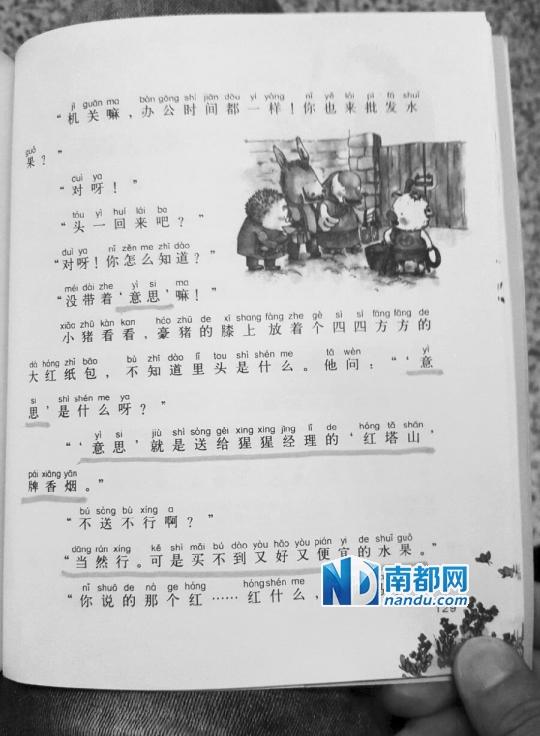 jī guān ma bàn gōng shí jiān dōu yí yàng nǐ yě lái pī fā shuǐ
“机关嘛，办公时间都一样！你也来批发水
guǒ
果？”
duì ya
“对呀！”
tóu yì huí lái ba
“头一回来吧？”
duì ya nǐ zěn me zhī dào
“对呀！你怎么知道？”
méi dài zhe yì si ma
“没带着‘意思’嘛！”
xiǎo zhū kàn kan háo zhū de xī shang fàng zhe gè sì sì fāng fāng de
小猪看看，豪猪的膝上放着个四四方方的
dà hóng zhǐ bāo bù zhī dào lǐ tou shì shén me tā wèn yì
大红纸包，不知道里头是什么。他问：“‘意
si shì shén me ya
思’是什么呀？”
yì si jiù shì sòng gěi xīng xing jīng lǐ de hóng tǎ shān
“‘意思’就是送给猩猩经理的‘红塔山’
pái xiāng yān
牌香烟。”
bú sòng bù xíng a
“不送不行啊？”
dāng rán xíng kě shì mǎi bú dào yòu hǎo yòu pián yi de shuǐ guǒ
“当然行。可是买不到又好又便宜的水果。”
nǐ shuō de nà ge hóng hóng shén me
“你说的那个红……红什么，
南都网
nandu.com
129